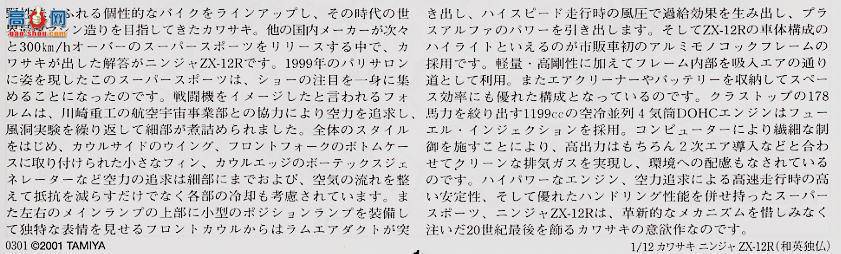 あふれる個性的なバイクをラインアップし、その時代の世
造りを目指してきたカワサキ。他の国内メーカーが次々
と300km/hオーバーのスーパースポーツをリリースする中で、カ
ワサキが出した解答がニンジャZX-12Rです。1999年のパリサロン
に姿を現したこのスーパースポーツは、ショーの注目を一身に集
めることになったのです。戦闘機をイメージしたと言われるフォ
ルムは、川崎重工の航空宇宙事業部との協力により空力を追求し、
風洞実験を繰り返して細部が煮詰められました。全体のスタイル
をはじめ、カウルサイドのウイング、フロントフォークのボトムケー
スに取り付けられた小さなフィン、カウルエッジのボーテックスジェ
ネレーターなど空力の追求は細部にまでおよび、空気の流れを整
えて抵抗を減らすだけでなく各部の冷却も考慮されています。ま
た左右のメインランプの上部に小型のポジションランプを装備し
て独特な表情を見せるフロントカウルからはラムエアダクトが突
き出し、ハイスピード走行時の風圧で過給効果を生み出し、プラ
スアルファのパワーを引き出します。そしてZX-12Rの車体構成の
ハイライトといえるのが市販車初のアルミモノコックフレームの
採用です。軽量・高剛性に加えてフレーム内部を吸入エアの通り
道として利用。またエアクリーナーやバッテリーを収納してスペー
ス効率にも優れた構成となっているのです。クラストップの178
馬力を絞り出す1199ccの空冷並列4気筒DOHCエンジンはフュー
エル・インジェクションを採用。コンピューターにより繊細な制
御を施すことにより、高出力はもちろん2次エア導入などと合わ
せてクリーンな排気ガスを実現し、環境への配慮もなされている
のです。ハイパワーなエンジン、空力追求による高速走行時の高
い安定性、そして優れたハンドリング性能を併せ持ったスーパー
スポーツ、ニンジャZX-12Rは、革新的なメカニズムを惜しみなく
注いだ20世紀最後を飾るカワサキの意欲作なのです。
0301 ©2001 TAMIYA
1/12 カワサキ ニンジャ ZX-12R (和英独仏)